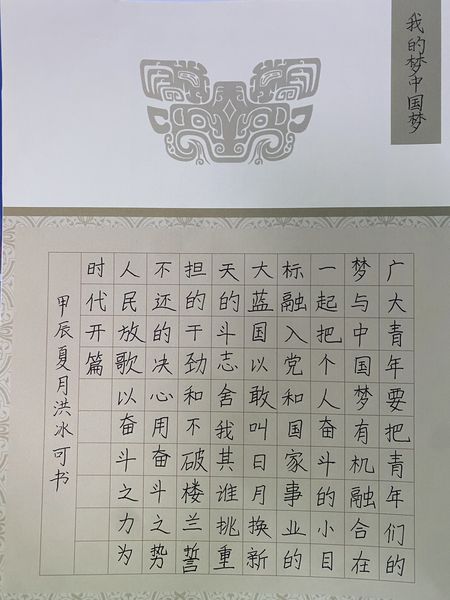 我的梦中国梦
广大青年要把青年们的
梦与中国梦有机融合在
一起把个人奋斗的小目
标融入党和国家事业的
大蓝国以敢叫日月换新
天的斗志舍我其谁挑重
担的干劲和不破楼兰誓
不还的决心用奋斗之势
人民放歌以奋斗之力为
时代开篇
甲辰夏月洪冰可书